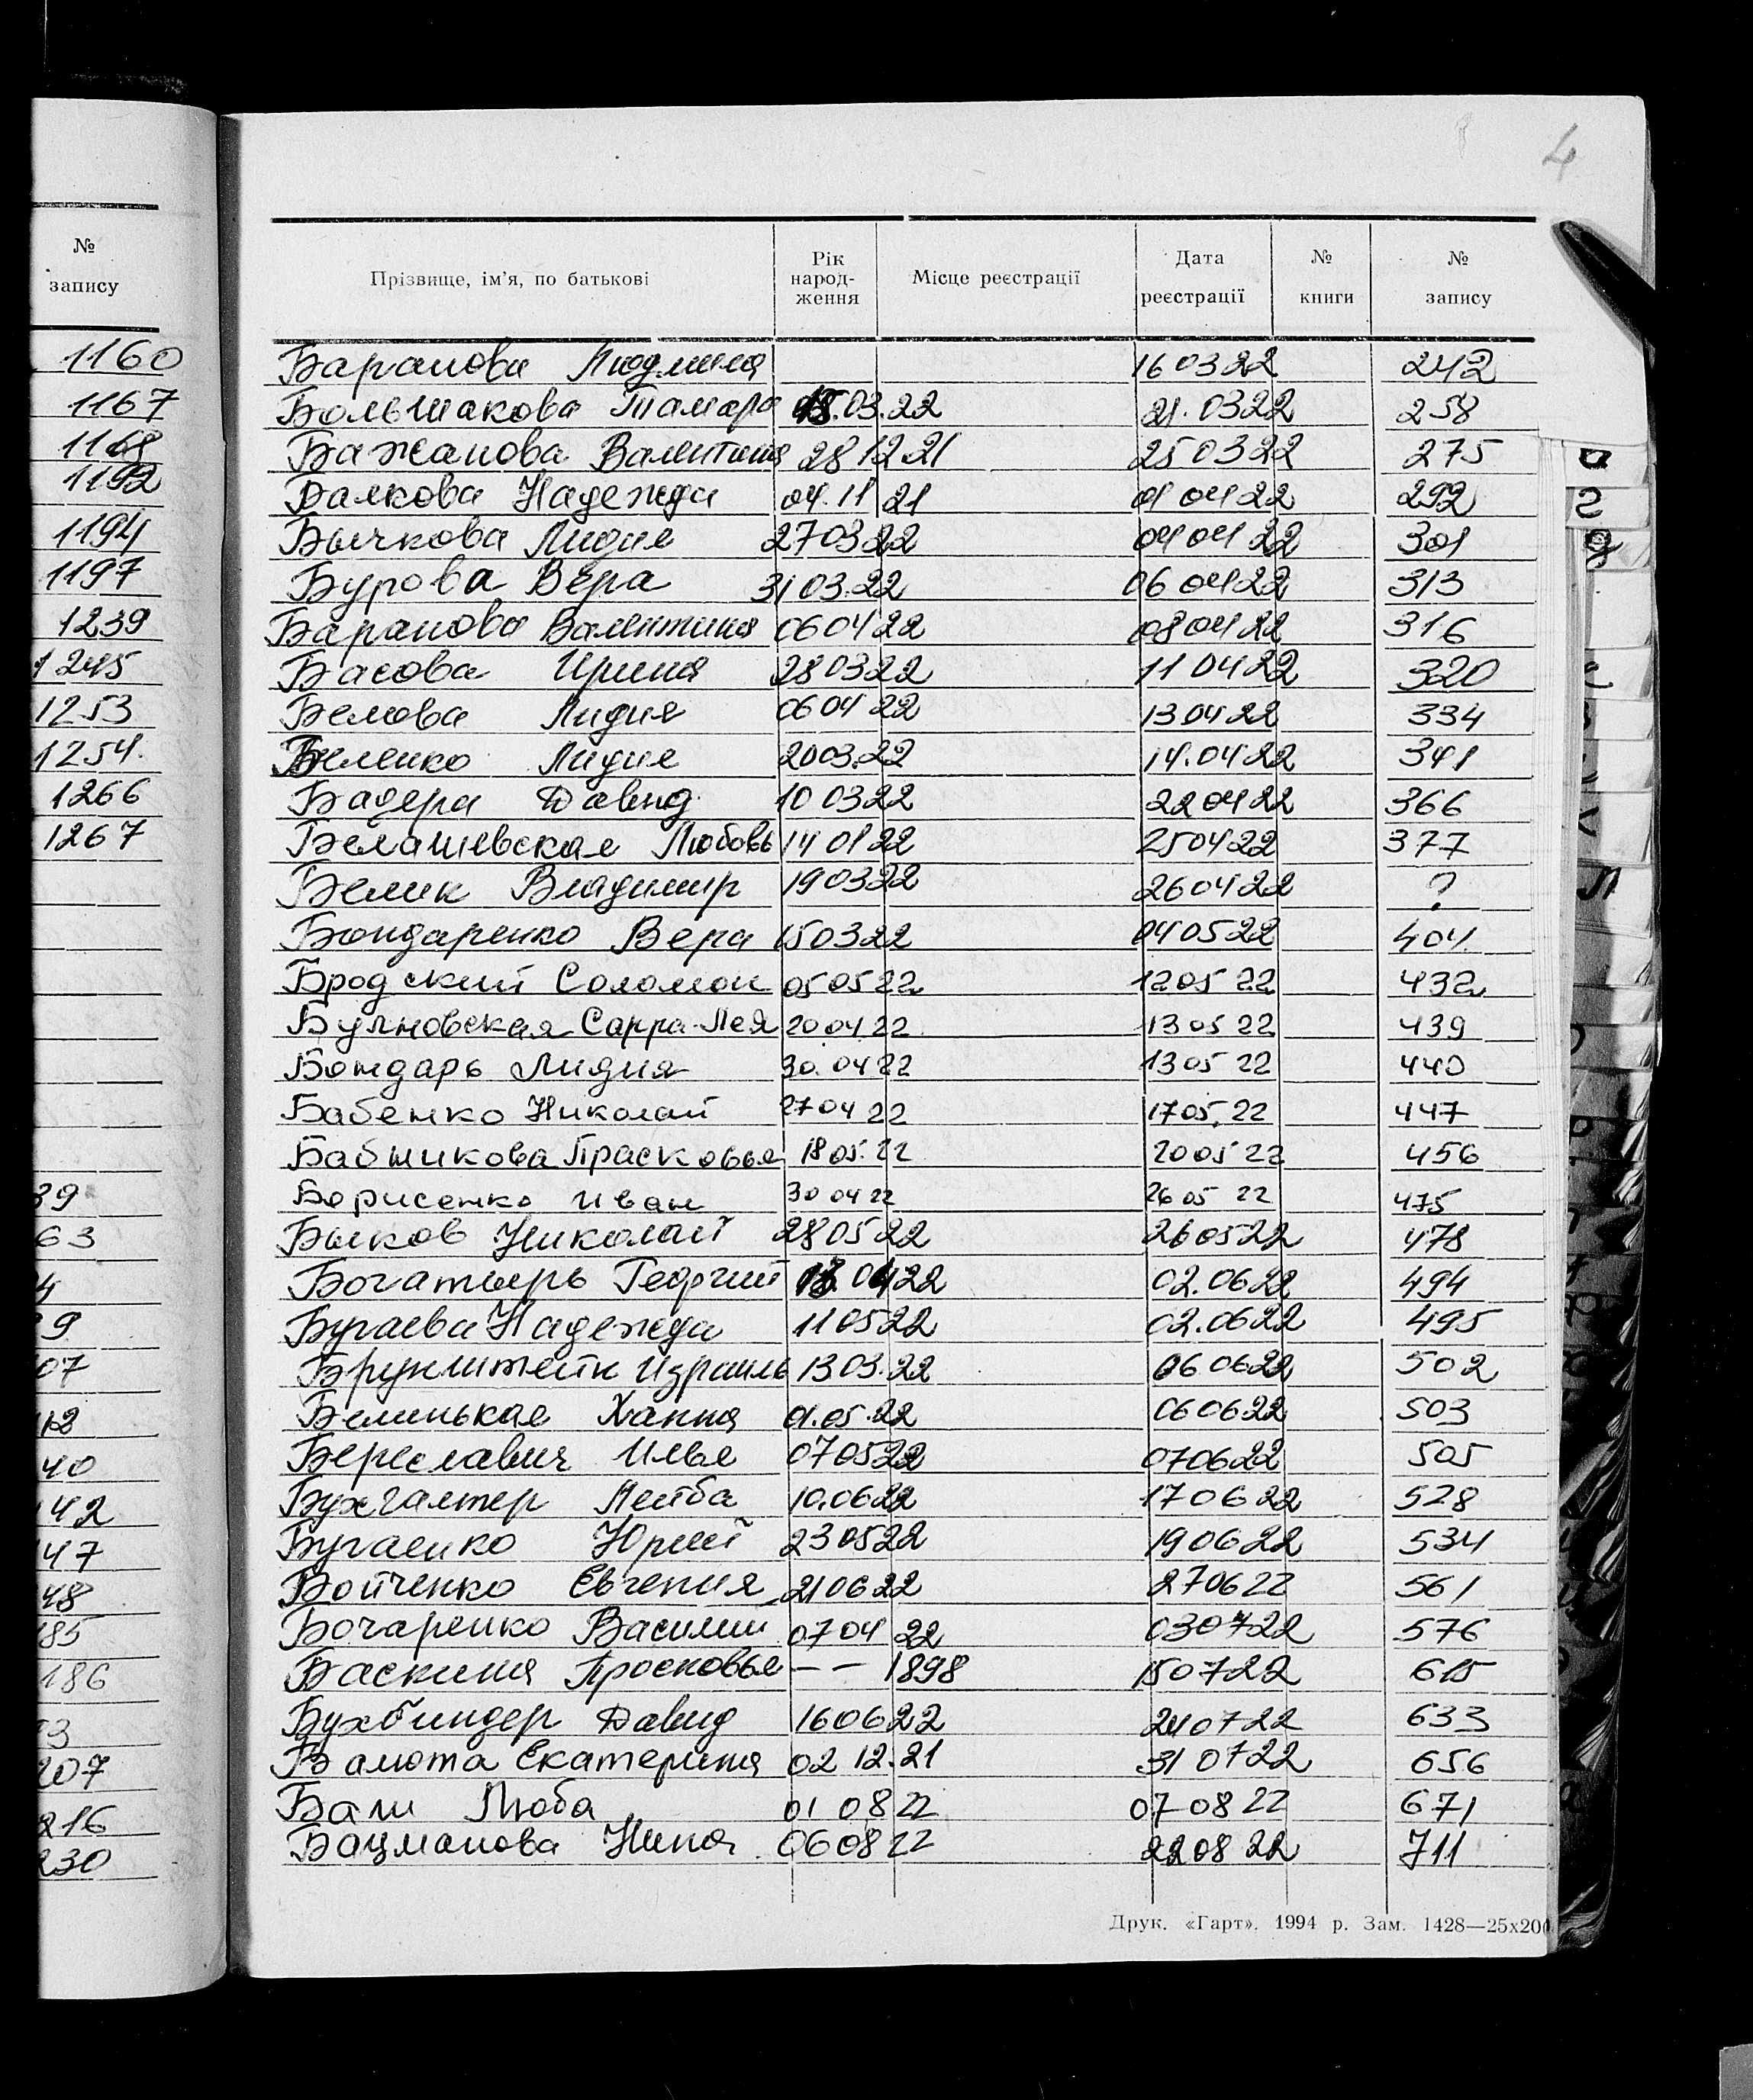 4
№
запису
1160
1167
1168
1192
1194
1197
1239
1245
1253
1254.
1266
1267
39
63
4
9
07
40
42
47
48
85
186
3
207
216
230
Прізвище, ім'я, по батькові Рік народ-ження Місце реєстрації Дата реєстрації № книги № запису
Баранова Людмила 16 03 22 242
Большакова Тамара .03.22 21.03 22 258
Бажанова Валентина 28 12 21 25 03 22 275
Балкова Надежда 04.11 21 01 04 22 292
Бычкова Лидия 27 03 22 04 04 22 301
Бурова Вера 31 03.22 06 04 22 313
Баранова Валентина 06 04 22 08 04 22 316
Басова Ирина 28 03 22 11 04 22 320
Белова Лидия 06 04 22 13 04 22 334
Беленко Лидия 20 03.22 14.04 22 341
Бадера Давид 10 03 22 22 04 22 366
Белашевская Любовь 14 01 22 25 04 22 377
Белик Владимир 19 03 22 26 04 22 ?
Бондаренко Вера 15 03 22 04 05 22 404.
Бродский Соломон 05 05 22 12 05 22 432
Сарра-Лея 20 04 22 13 05 22 439
Бондарь Лидия 30.04 22 13 05 22 440
Бабенко Николай 27 04 22 17 05.22 447
Бабшикова Прасковья 18 05.22 20 05 22 456
Борисенко Иван 30 04 22 26 05 22 475
Быков Николай 28 05 22 26 05 22 478
Богатырь Георгий 22 02.06 22 494
Бугаева Надежда 11 05 22 02.06 22 495
Брунштейн Израиль 13 03.22 06 06 22 502
Белинькая Ханна 01.05.22 06 06 22 503
Береславич Илья 07 05 22 07 06 22 505
Бухгалтер Лейба 10.06 22 17 06 22 528
Бугаенко Юрий 23 05 22 19 06 22 534
Бойченко Евгения 21 06 22 27 06 22 561
Бочаренко Василий 07 04 22 03 07 22 576
Баскина Просковья — — 1898 15 07 22 615
Бухбиндер Давид 16 06 22 24 07 22 633
Балюта Екатерина 02 12.21 31 07 22 656
Бали Люба 01 08 22 07 08 22 671
Бацманова Нина 06 08 22 22 08 22 711
Друк. «Гарт». 1994 р. Зам. 1428—25х200